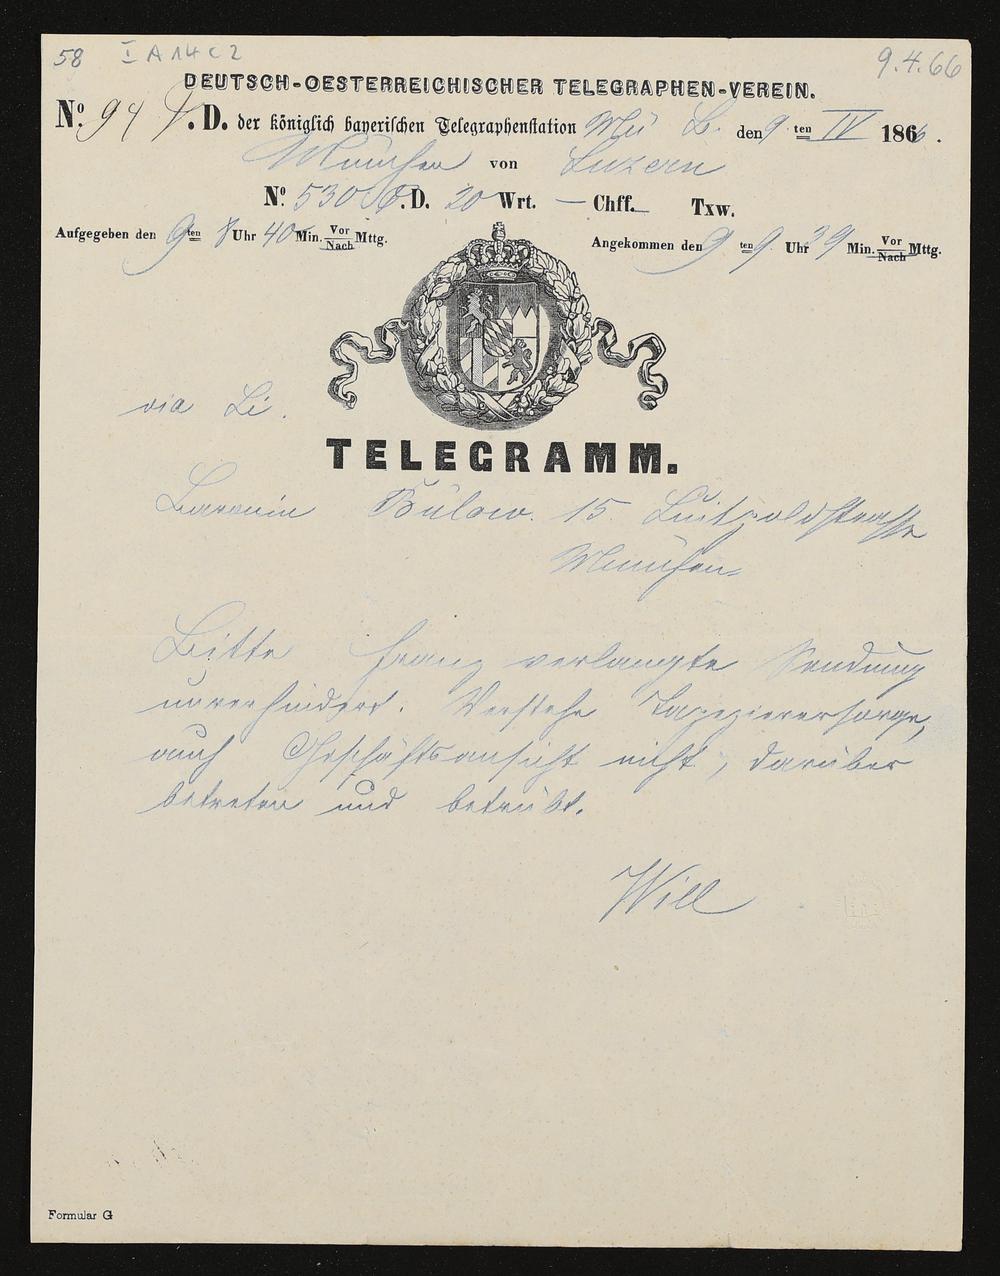 58 I A 14 c 2 9.4.66
DEUTSCH-OESTERREICHISCHER TELEGRAPHEN-VEREIN.
No. 94 .D. der königlich bayerischen Telegraphenstation Mü B. den 9 ten IV 1866.
München von Luzern
No. 530 .D. 20 Wrt. — Chff. — Txw.
Aufgegeben den 9 ten 8 Uhr 40 Min. Vor Nach Mttg. Angekommen den 9 ten 9 Uhr 39 Min. Vor Nach Mttg.
via Li.
TELEGRAMM.
Baronin Bülow. 15. Luitpoldstrasse
München
Bitte Franz verlangte Sendung
unverhindert. Verstehe Tapezierersorge,
auch Geschäftsansicht nicht, darüber
betreten und betrübt.
Will
Formular G